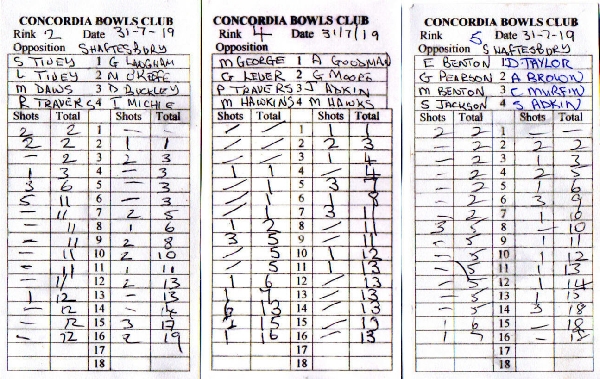 CONCORDIA BOWLS CLUB
Rink 2 Date 31-7-19
Opposition SHAFTESBURY
S TIVEY 1 G LAUGHAM
L TIVEY 2 M O'KEEFE
M DAWS 3 D BUCKLEY
R TRAVERS 4 T MICHIE
Shots Total Shots Total
2 2 1 — —
2 2 2 1 1
— 2 3 2 3
1 3 4 — 3
3 6 5 — 3
5 11 6 — 3
— 11 7 2 5
— 11 8 1 6
— 11 9 2 8
— 11 10 2 10
— 11 11 1 11
— 11 12 2 13
1 12 13 — 13
— 12 14 — 14
— 12 15 3 17
— 12 16 2 19
17
18
CONCORDIA BOWLS CLUB
Rink 4 Date 31/7/19
Opposition
M GEORGE 1 A GOODMAN
G LEVER 2 G MOORE
P TRAVERS 3 J ADKIN
M HAWKINS 4 M HAWKS
Shots Total Shots Total
1 1 1
2 2 3
3 1 4
1 1 4 4
1 5 3 7
1 6 1 8
1 7 3 11
1 2 8 11
3 5 9 11
5 10 1 12
5 11 1 13
1 6 12 13
1 13 13
13 14 13
15 15 13
1 16 16 13
17
18
CONCORDIA BOWLS CLUB
Rink 5 Date 31-7-19
Opposition SHAFTESBURY
E BENTON 1 D TAYLOR
G PEARSON 2 A BROWN
M BENTON 3 C MURFIN
S JACKSON 4 S ADKIN
Shots Total Shots Total
2 2 1 — —
— 2 2 2 2
— 2 3 1 3
— 2 4 2 5
— 2 5 1 6
— 2 6 3 9
— 2 7 1 10
3 5 8 — 10
— 5 9 1 11
— 5 10 1 12
— 5 11 1 13
— 5 12 1 14
— 5 13 1 15
— 5 14 3 18
1 6 15 — 18
1 16 — 18
17
18